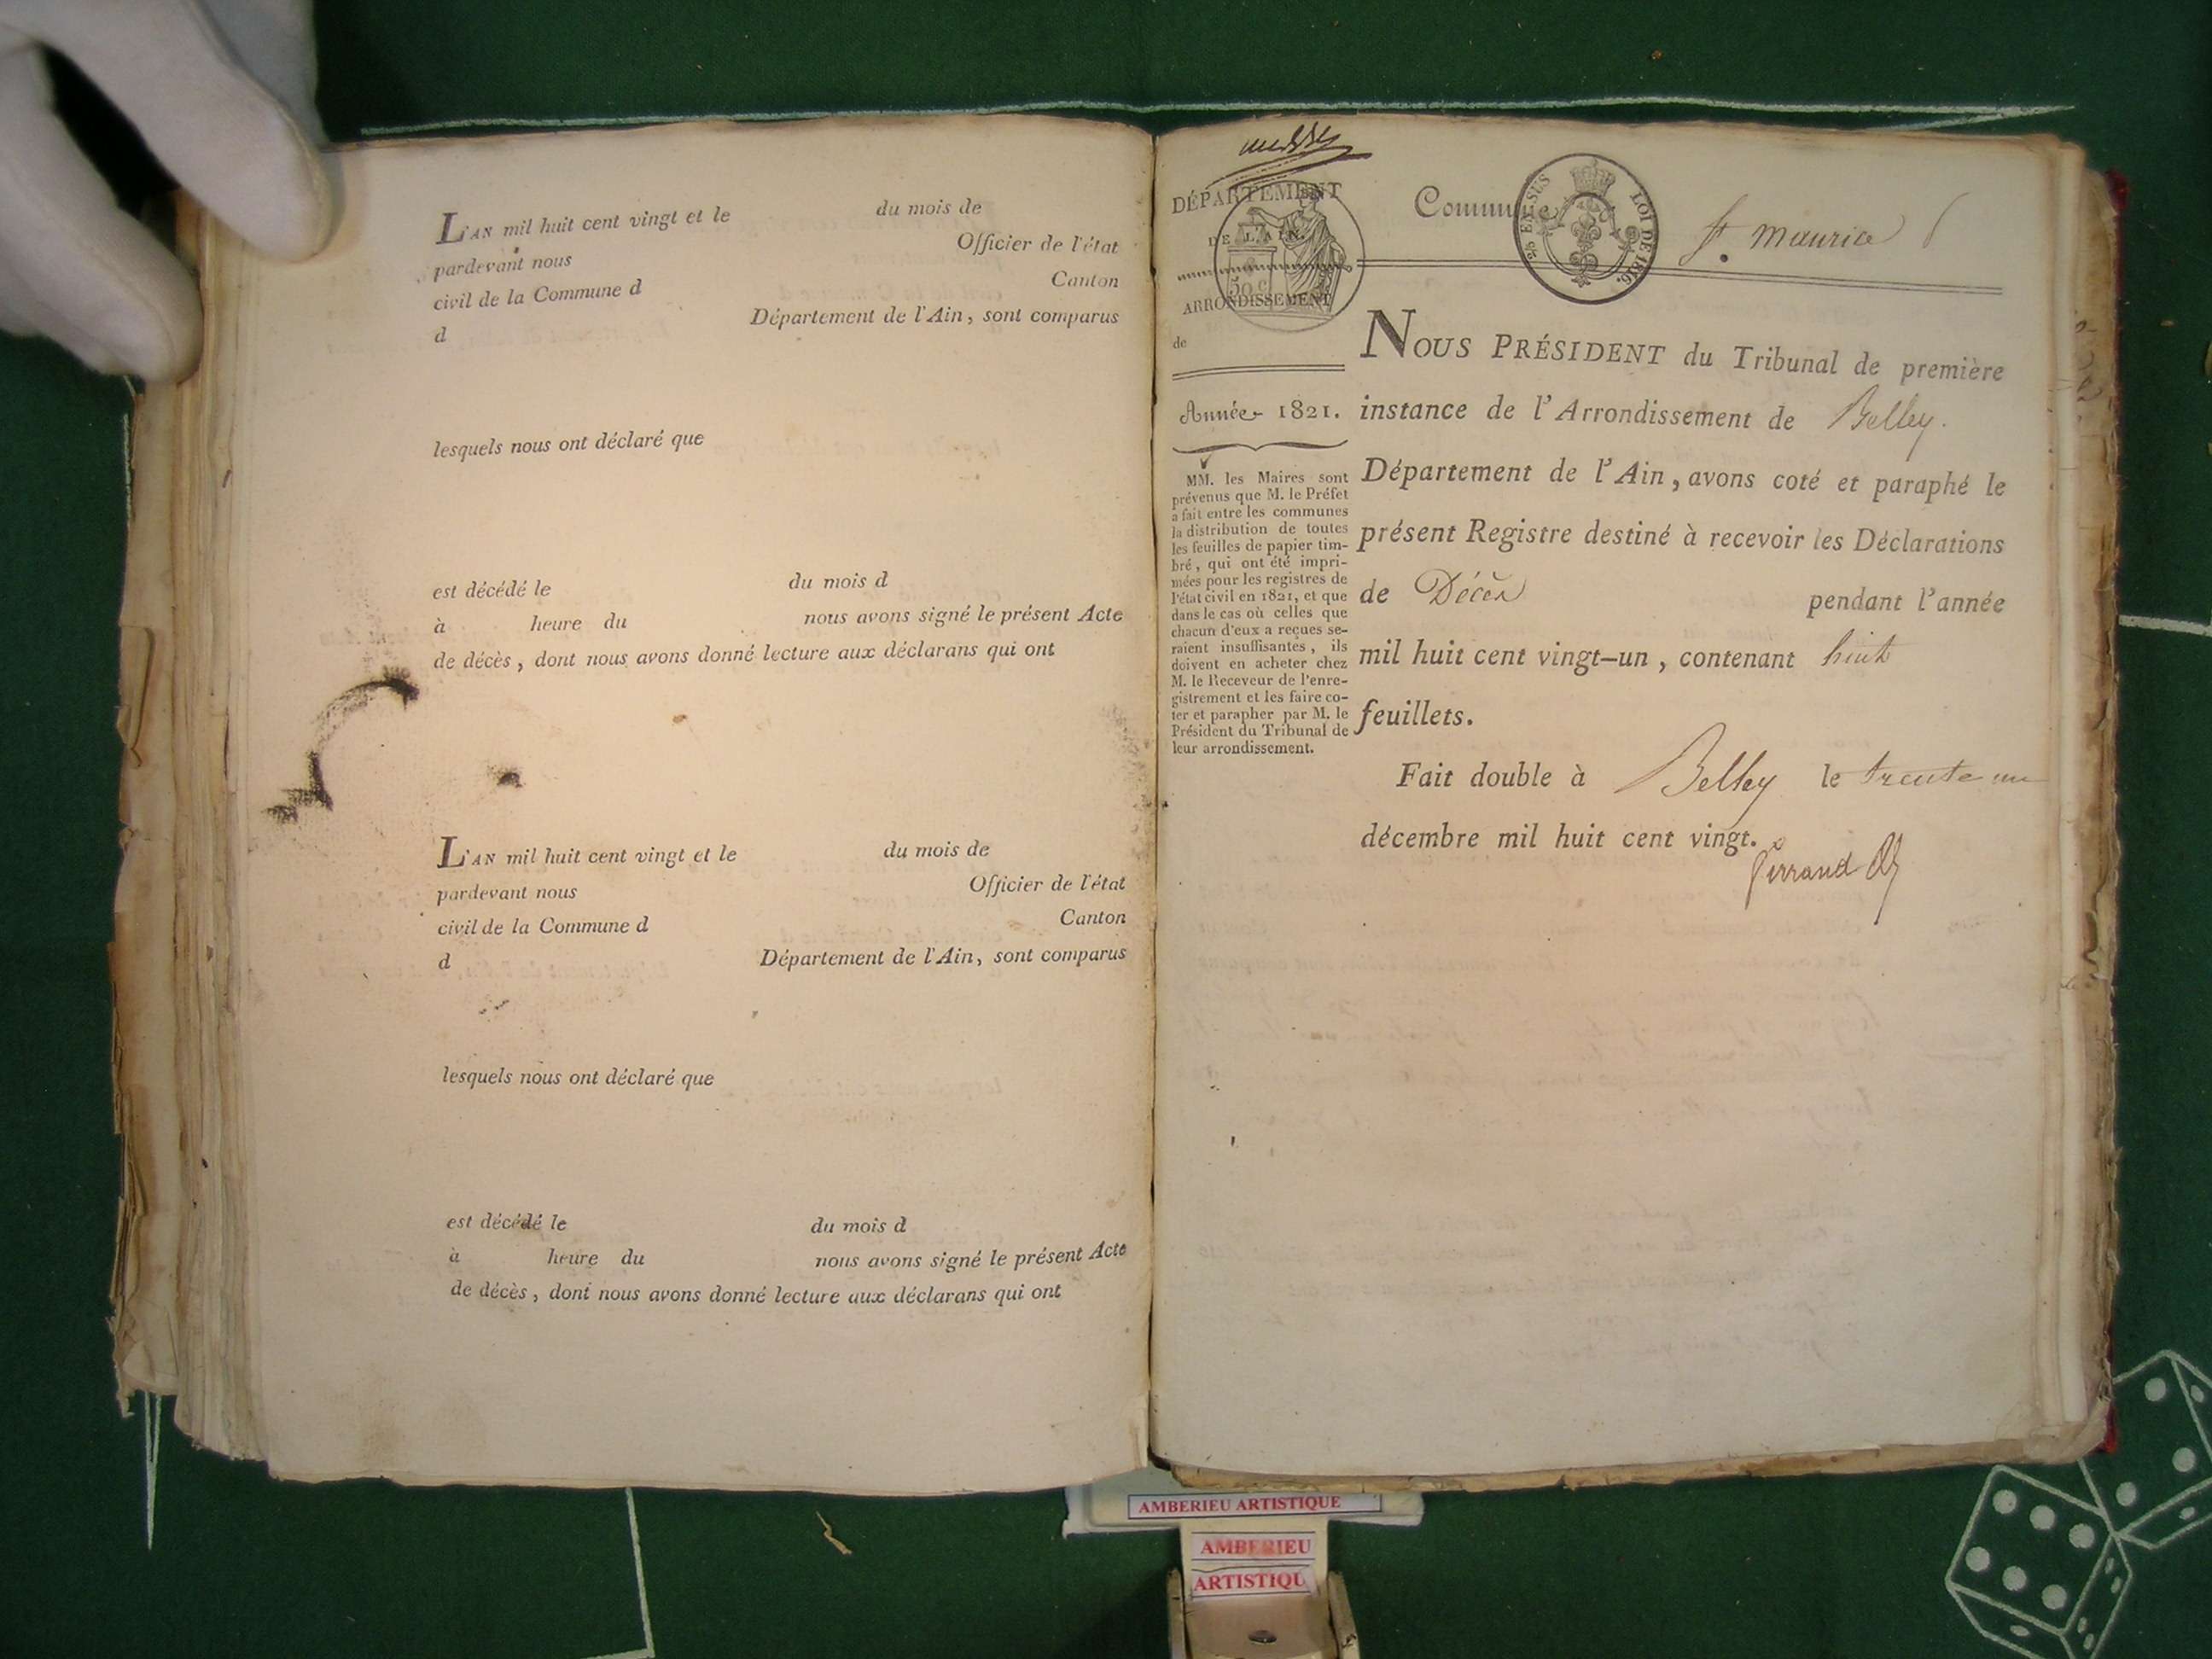 L'AN mil huit cent vingt et le du mois de
pardevant nous Officier de l'état
civil de la Commune d Canton
d Département de l'Ain, sont comparus
lesquels nous ont déclaré que
est décédé le du mois d
à heure du nous avons signé le présent Acte
de décès, dont nous avons donné lecture aux déclarans qui ont
L'AN mil huit cent vingt et le du mois de
pardevant nous Officier de l'état
civil de la Commune d Canton
d Département de l'Ain, sont comparus
lesquels nous ont déclaré que
est décédé le du mois d
à heure du nous avons signé le présent Acte
de décès, dont nous avons donné lecture aux déclarans qui ont
DÉPARTEMENT
DE L'AIN.
50 c
ARRONDISSEMENT
de
Année 1821.
MM. les Maires sont
prévenus que M. le Préfet
a fait entre les communes
la distribution de toutes
les feuilles de papier tim-
bré, qui ont été impri-
mées pour les registres de
l'état civil en 1821, et que
dans le cas où celles que
chacun d'eux a reçues se-
raient insuffisantes, ils
doivent en acheter chez
M. le Receveur de l'enre-
gistrement et les faire co-
ter et parapher par M. le
Président du Tribunal de
leur arrondissement.
Commune St maurice
EN SUS LOI DE 1816.
NOUS PRÉSIDENT du Tribunal de première
instance de l'Arrondissement de Belley.
Département de l'Ain, avons coté et paraphé le
présent Registre destiné à recevoir les Déclarations
de Décès pendant l'année
mil huit cent vingt-un, contenant huit
feuillets.
Fait double à Belley le trente un
décembre mil huit cent vingt.
AMBERIEU ARTISTIQUE
AMBERIEU
ARTISTIQU